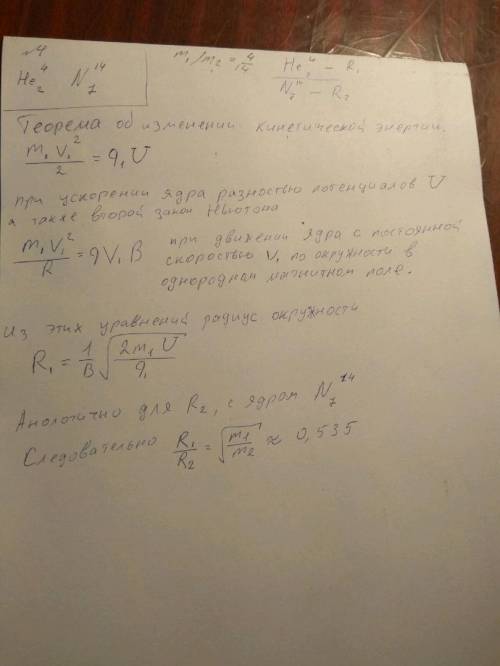 №4
He₂⁴ N₇¹⁴ m₁/m₂ = 4/14 He₂⁴ – R₁
N₇¹⁴ – R₂
Теорема об изменении кинетической энергии.
m₁V₁²/2 = q₁U
при ускорении ядра разностью потенциалов U
а также второй закон Ньютона
m₁V₁²/R = qV₁B при движении ядра с постоянной
скоростью V₁ по окружности в
однородном магнитном поле.
Из этих уравнений радиус окружности
R₁ = 1/B √(2m₁U/q₁)
Анологично для R₂, с ядром N₇¹⁴
Следовательно R₁/R₂ = √(m₁/m₂) ≈ 0,535